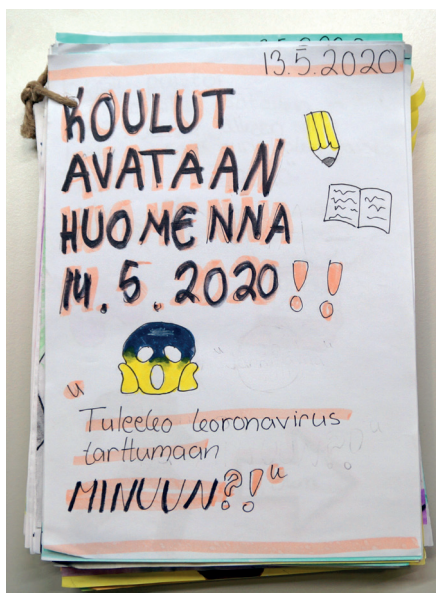 13.5.2020
KOULUT
AVATAAN
HUOMENNA
14.5.2020!!
"
Tuleeko koronavirus
tarttumaan
MINUUN?!"